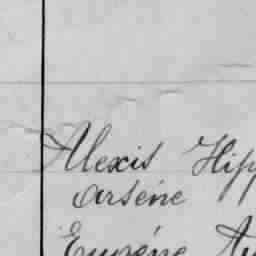 Alexis Hipp
Arsène
Eugène Au